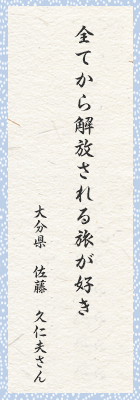 全てから解放される旅が好き
大分県　佐藤　久仁夫さん